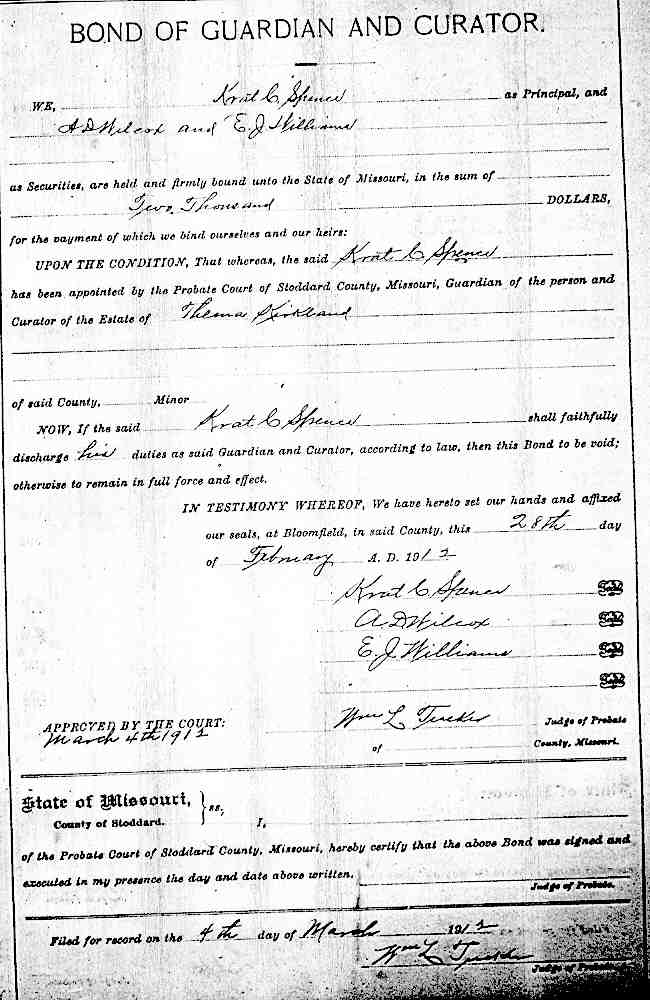 BOND OF GUARDIAN AND CURATOR.
WE, Krat C Spence as Principal, and
A D Wilcox and E. J. Williams
as Securities, are held and firmly bound unto the State of Missouri, in the sum of
Two Thousand DOLLARS,
for the payment of which we bind ourselves and our heirs:
UPON THE CONDITION, That whereas, the said Krat C Spence
has been appointed by the Probate Court of Stoddard County, Missouri, Guardian of the person and
Curator of the Estate of Thelma Kirkland
of said County, Minor
NOW, If the said Krat C Spence shall faithfully
discharge his duties as said Guardian and Curator, according to law, then this Bond to be void;
otherwise to remain in full force and effect.
IN TESTIMONY WHEREOF, We have hereto set our hands and affixed
our seals, at Bloomfield, in said County, this 28th day
of February A. D. 1912
Krat C Spence Seal
A. D Wilcox Seal
E. J Williams Seal
Seal
APPROVED BY THE COURT: Wm L Tucker Judge of Probate
March 4th 1912
of County, Missouri.
State of Missouri, } ss,
County of Stoddard. I,
of the Probate Court of Stoddard County, Missouri, hereby certify that the above Bond was signed and
executed in my presence the day and date above written.
Judge of Probate.
Filed for record on the 4th day of March 1912
Wm L Tucker
Judge of Probate.